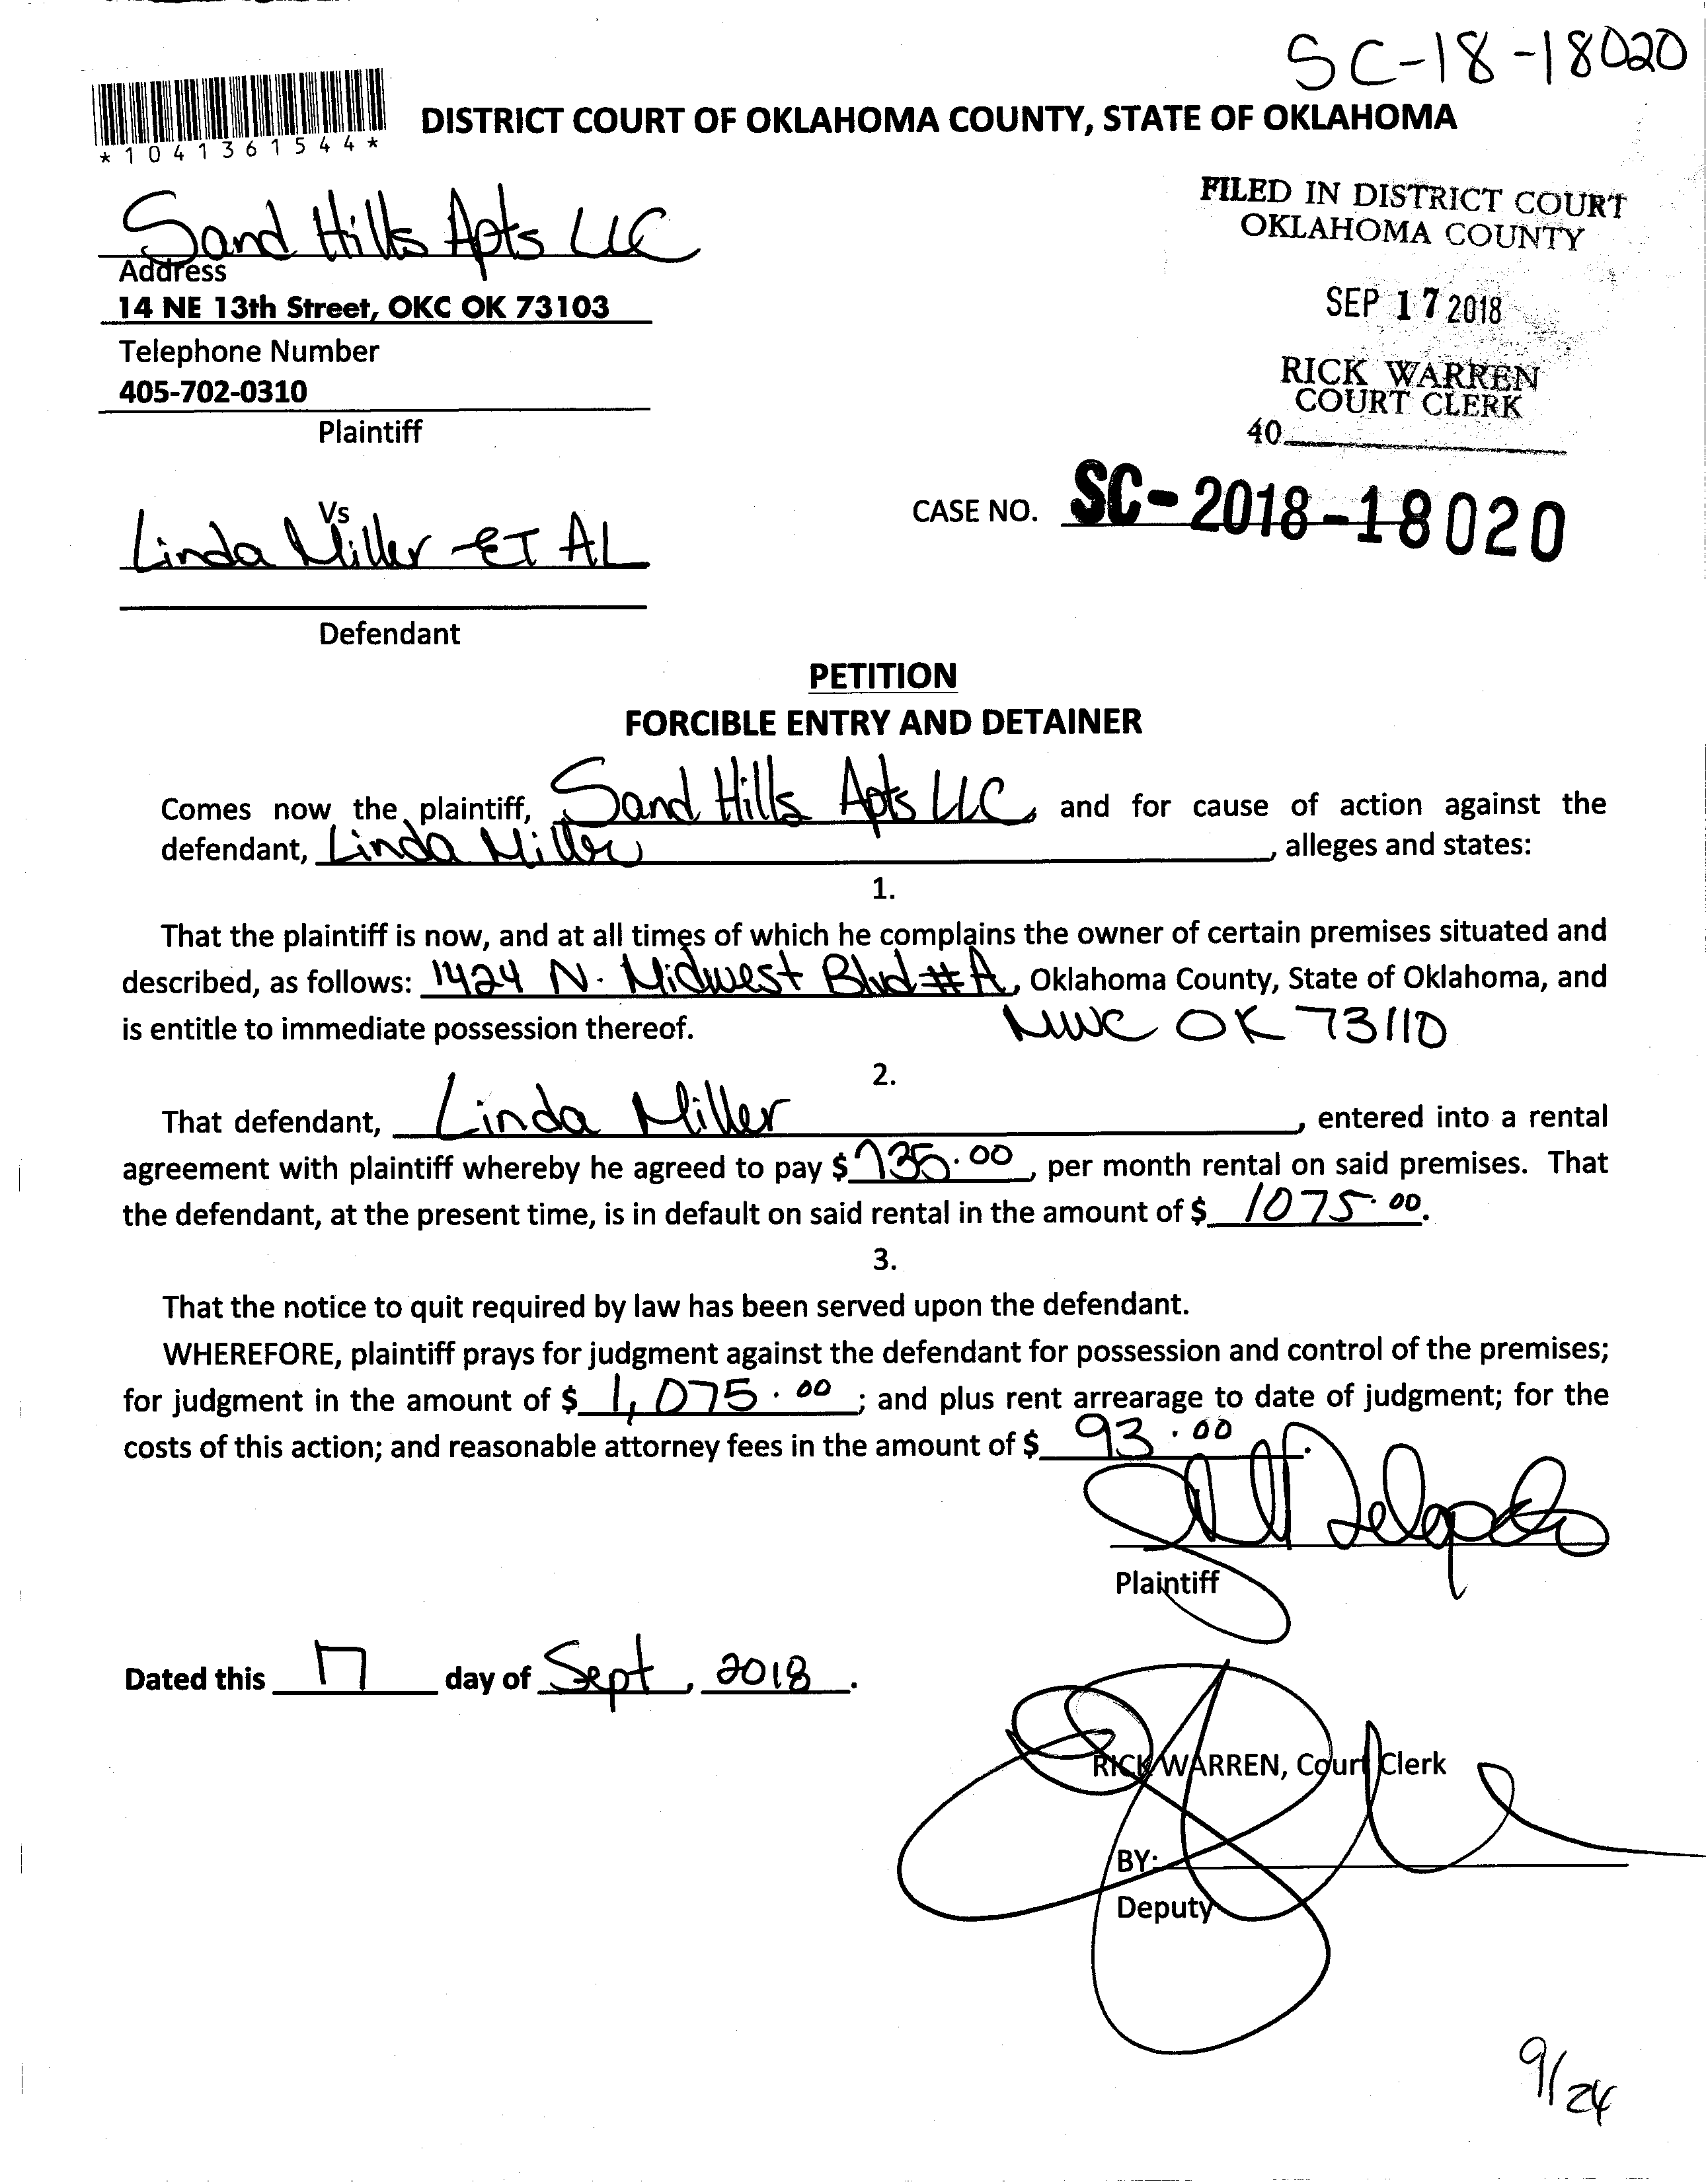 SC-18-18020
*1041361544*
DISTRICT COURT OF OKLAHOMA COUNTY, STATE OF OKLAHOMA
Sand Hills Apts LLC
Address
14 NE 13th Street, OKC OK 73103
Telephone Number
405-702-0310
Plaintiff
FILED IN DISTRICT COURT
OKLAHOMA COUNTY
SEP 17 2018
RICK WARREN
COURT CLERK
40
Vs
CASE NO. SC-2018-18020
Linda Miller ET AL
Defendant
PETITION
FORCIBLE ENTRY AND DETAINER
Comes now the plaintiff, Sand Hills Apts LLC, and for cause of action against the
defendant, Linda Miller, alleges and states:
1.
That the plaintiff is now, and at all times of which he complains the owner of certain premises situated and
described, as follows: 1424 N. Midwest Blvd #A, Oklahoma County, State of Oklahoma, and
is entitle to immediate possession thereof. MWC OK 73110
2.
That defendant, Linda Miller, entered into a rental
agreement with plaintiff whereby he agreed to pay $735.00, per month rental on said premises. That
the defendant, at the present time, is in default on said rental in the amount of $ 1075.00.
3.
That the notice to quit required by law has been served upon the defendant.
WHEREFORE, plaintiff prays for judgment against the defendant for possession and control of the premises;
for judgment in the amount of $ 1,075.00; and plus rent arrearage to date of judgment; for the
costs of this action; and reasonable attorney fees in the amount of $ 93.00.
Delgado
Plaintiff
Dated this 17 day of Sept, 2018.
RICK WARREN, Court Clerk
BY:
Deputy
9/24